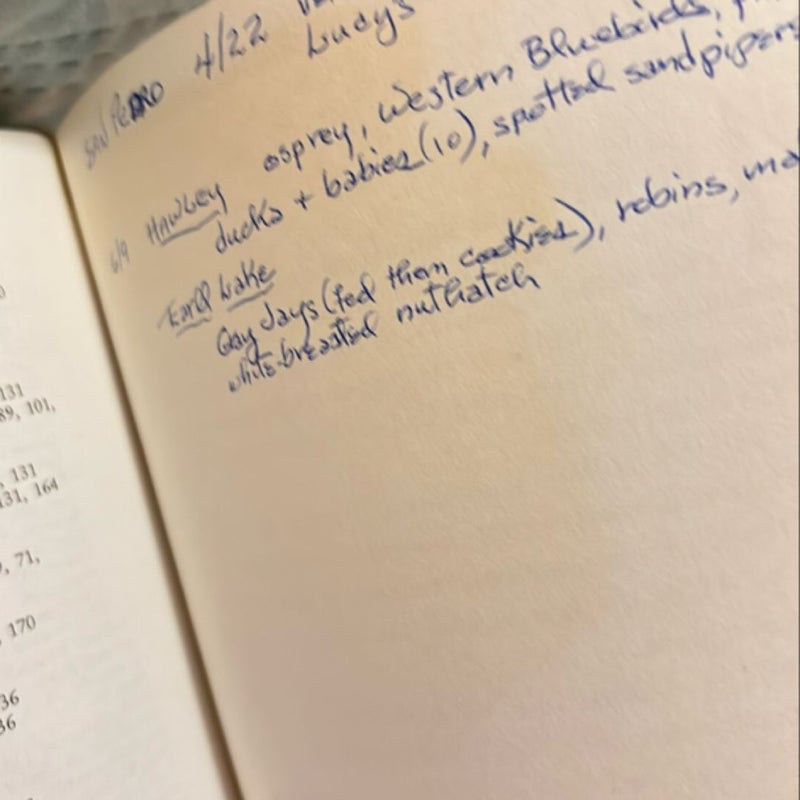 SAN PEDRO 4/22
Lucy's
6/9 HAWLEY osprey, Western Bluebirds,
ducks + babies (10), spotted sandpipers
Earll Lake
Gray Jays (fed them cookies), robins,
white-breasted nuthatch
131
89, 101,
, 131
131, 164
, 71,
, 170
36
36